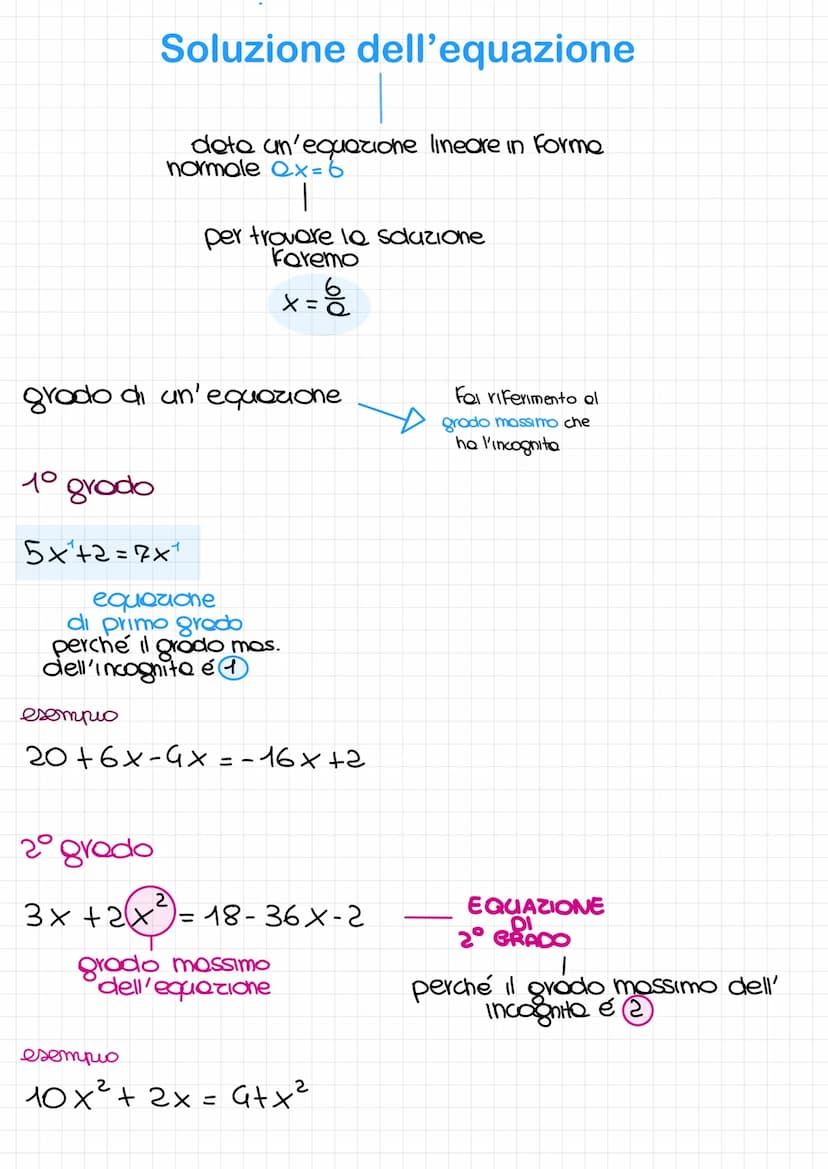 Soluzione dell'equazione
data un'equazione lineare in forma
normale ax=b
per trovare la soluzione
faremo
x = b/a
grado di un'equazione
Fai riferimento al
grado massimo che
ha l'incognita
1º grado
5x¹+2=7x¹
equazione
di primo grado
perché il grado mas.
dell'incognita é 1
esempio
20+6x-4x=-16x+2
2º grado
3x+2x²=18-36x-2
EQUAZIONE
DI
2º GRADO
grado massimo
dell'equazione
perché il grado massimo dell'
incognita é 2
esempio
10x²+2x=4+x²